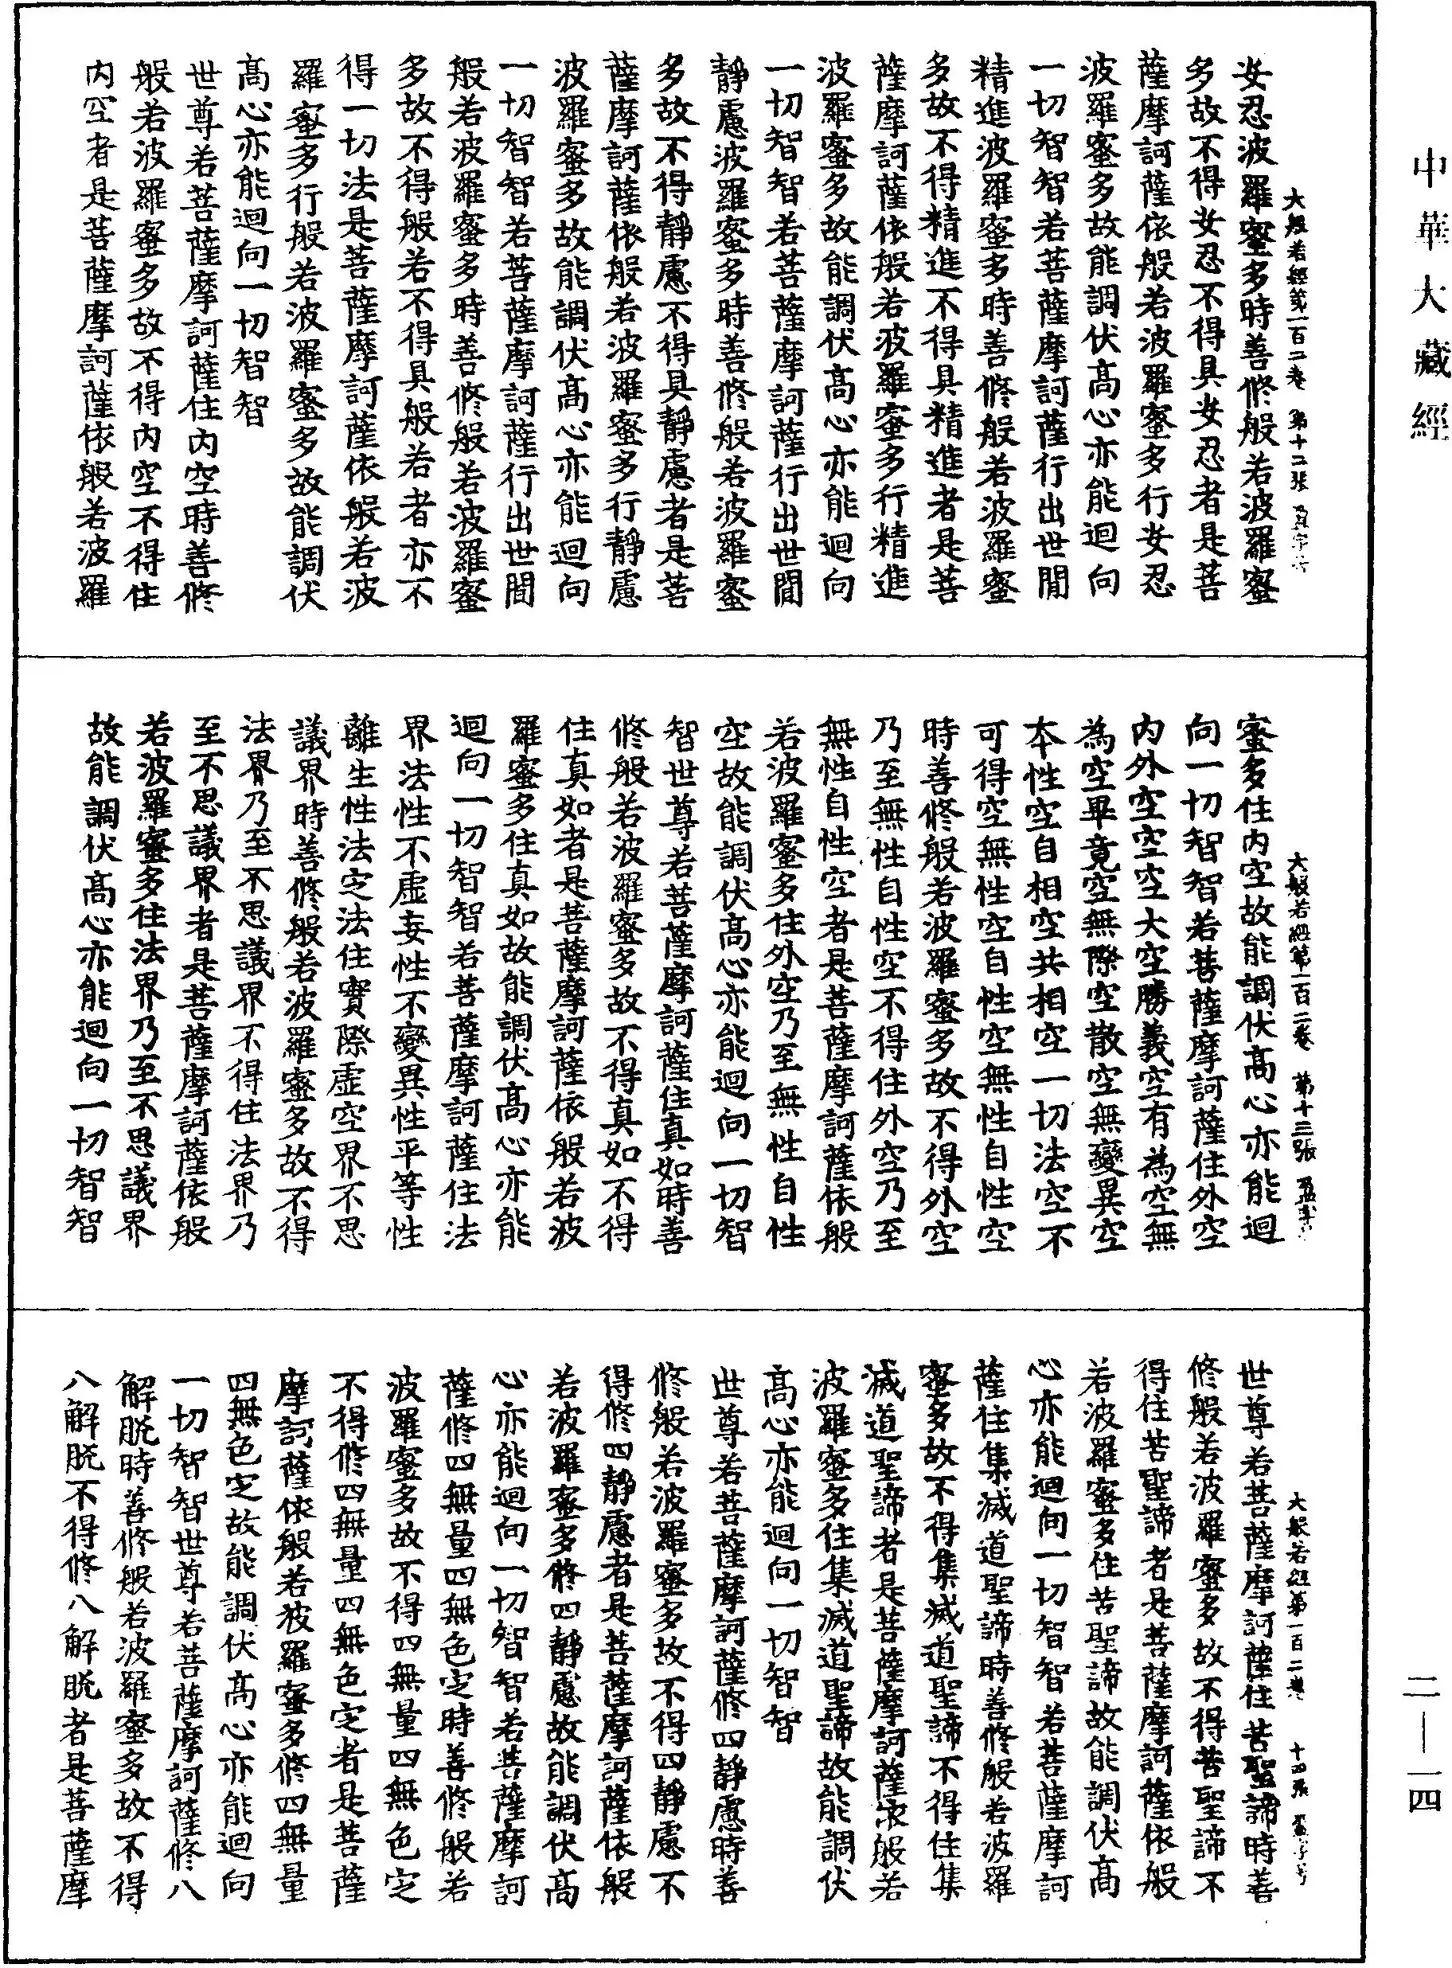 中華大藏經
大般若經第一百二卷 第十二張
安忍波羅蜜多時善修般若波羅蜜
多故不得安忍不得具安忍者是菩
薩摩訶薩依般若波羅蜜多行安忍
波羅蜜多故能調伏高心亦能迴向
一切智智若菩薩摩訶薩行出世間
精進波羅蜜多時善修般若波羅蜜
多故不得精進不得具精進者是菩
薩摩訶薩依般若波羅蜜多行精進
波羅蜜多故能調伏高心亦能迴向
一切智智若菩薩摩訶薩行出世間
靜慮波羅蜜多時善修般若波羅蜜
多故不得靜慮不得具靜慮者是菩
薩摩訶薩依般若波羅蜜多行靜慮
波羅蜜多故能調伏高心亦能迴向
一切智智若菩薩摩訶薩行出世間
般若波羅蜜多時善修般若波羅蜜
多故不得般若不得具般若者亦不
得一切法是菩薩摩訶薩依般若波
羅蜜多行般若波羅蜜多故能調伏
高心亦能迴向一切智智
世尊若菩薩摩訶薩住內空時善修
般若波羅蜜多故不得內空不得住
內空者是菩薩摩訶薩依般若波羅
大般若經第一百二卷 第十三張
蜜多住內空故能調伏高心亦能迴
向一切智智若菩薩摩訶薩住外空
內外空空空大空勝義空有為空無
為空畢竟空無際空散空無變異空
本性空自相空共相空一切法空不
可得空無性空自性空無性自性空
時善修般若波羅蜜多故不得外空
乃至無性自性空不得住外空乃至
無性自性空者是菩薩摩訶薩依般
若波羅蜜多住外空乃至無性自性
空故能調伏高心亦能迴向一切智
智世尊若菩薩摩訶薩住真如時善
修般若波羅蜜多故不得真如不得
住真如者是菩薩摩訶薩依般若波
羅蜜多住真如故能調伏高心亦能
迴向一切智智若菩薩摩訶薩住法
界法性不虛妄性不變異性平等性
離生性法定法住實際虛空界不思
議界時善修般若波羅蜜多故不得
法界乃至不思議界不得住法界乃
至不思議界者是菩薩摩訶薩依般
若波羅蜜多住法界乃至不思議界
故能調伏高心亦能迴向一切智智
大般若經第一百二卷 十四張
世尊若菩薩摩訶薩住苦聖諦時善
修般若波羅蜜多故不得苦聖諦不
得住苦聖諦者是菩薩摩訶薩依般
若波羅蜜多住苦聖諦故能調伏高
心亦能迴向一切智智若菩薩摩訶
薩住集滅道聖諦時善修般若波羅
蜜多故不得集滅道聖諦不得住集
滅道聖諦者是菩薩摩訶薩依般若
波羅蜜多住集滅道聖諦故能調伏
高心亦能迴向一切智智
世尊若菩薩摩訶薩修四靜慮時善
修般若波羅蜜多故不得四靜慮不
得修四靜慮者是菩薩摩訶薩依般
若波羅蜜多修四靜慮故能調伏高
心亦能迴向一切智智若菩薩摩訶
薩修四無量四無色定時善修般若
波羅蜜多故不得四無量四無色定
不得修四無量四無色定者是菩薩
摩訶薩依般若波羅蜜多修四無量
四無色定故能調伏高心亦能迴向
一切智智世尊若菩薩摩訶薩修八
解脫時善修般若波羅蜜多故不得
八解脫不得修八解脫者是菩薩摩
二—一四